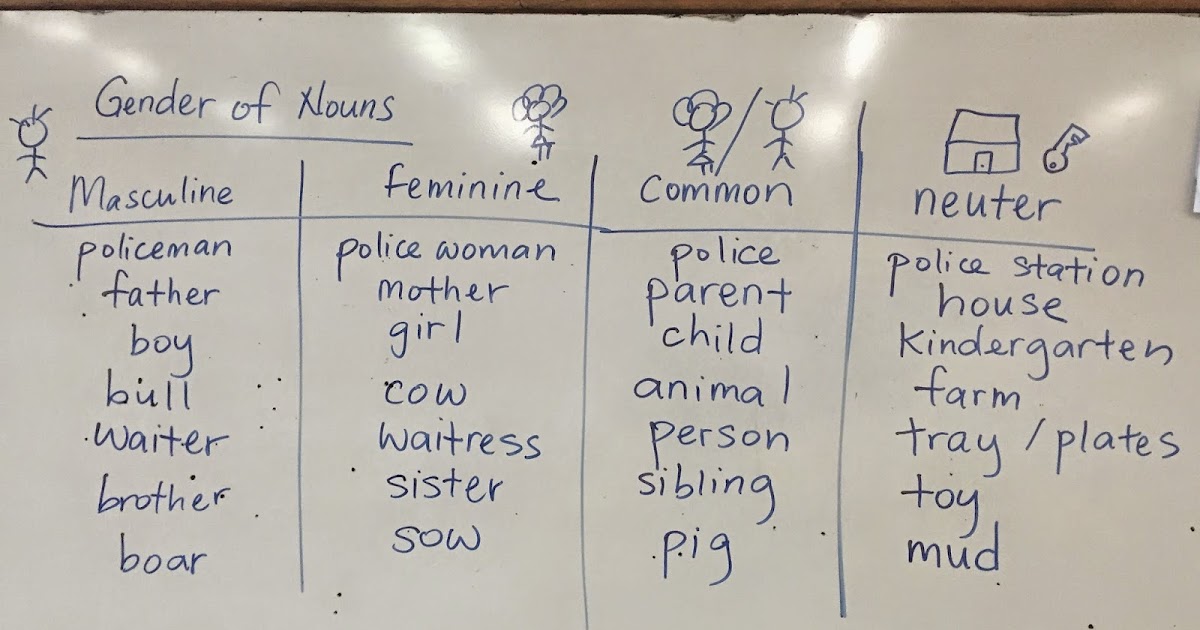 Gender of Nouns
Masculine feminine common neuter
policeman police woman police police station
father mother parent house
boy girl child kindergarten
bull cow animal farm
waiter waitress person tray / plates
brother sister sibling toy
boar sow pig mud